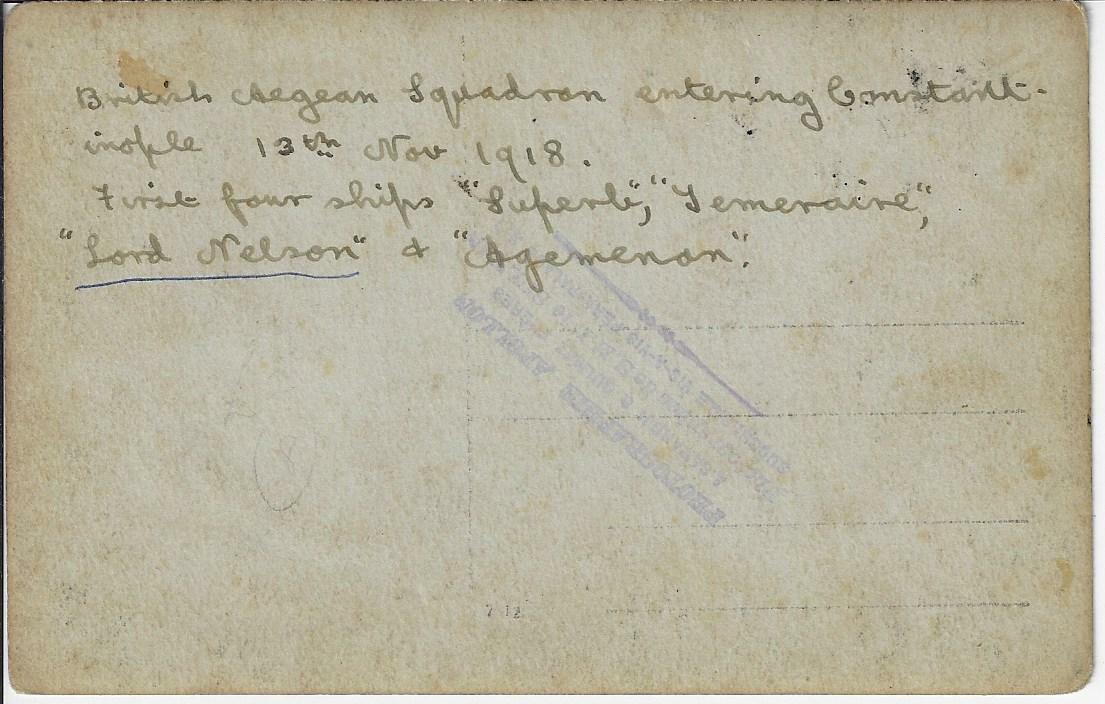 British Aegean Squadron entering Constant-
inople 13th Nov 1918.
First four ships "Superb", "Temeraire",
"Lord Nelson" & "Agemenon".
PHOTOGRAPHIE APOLLON
7 12